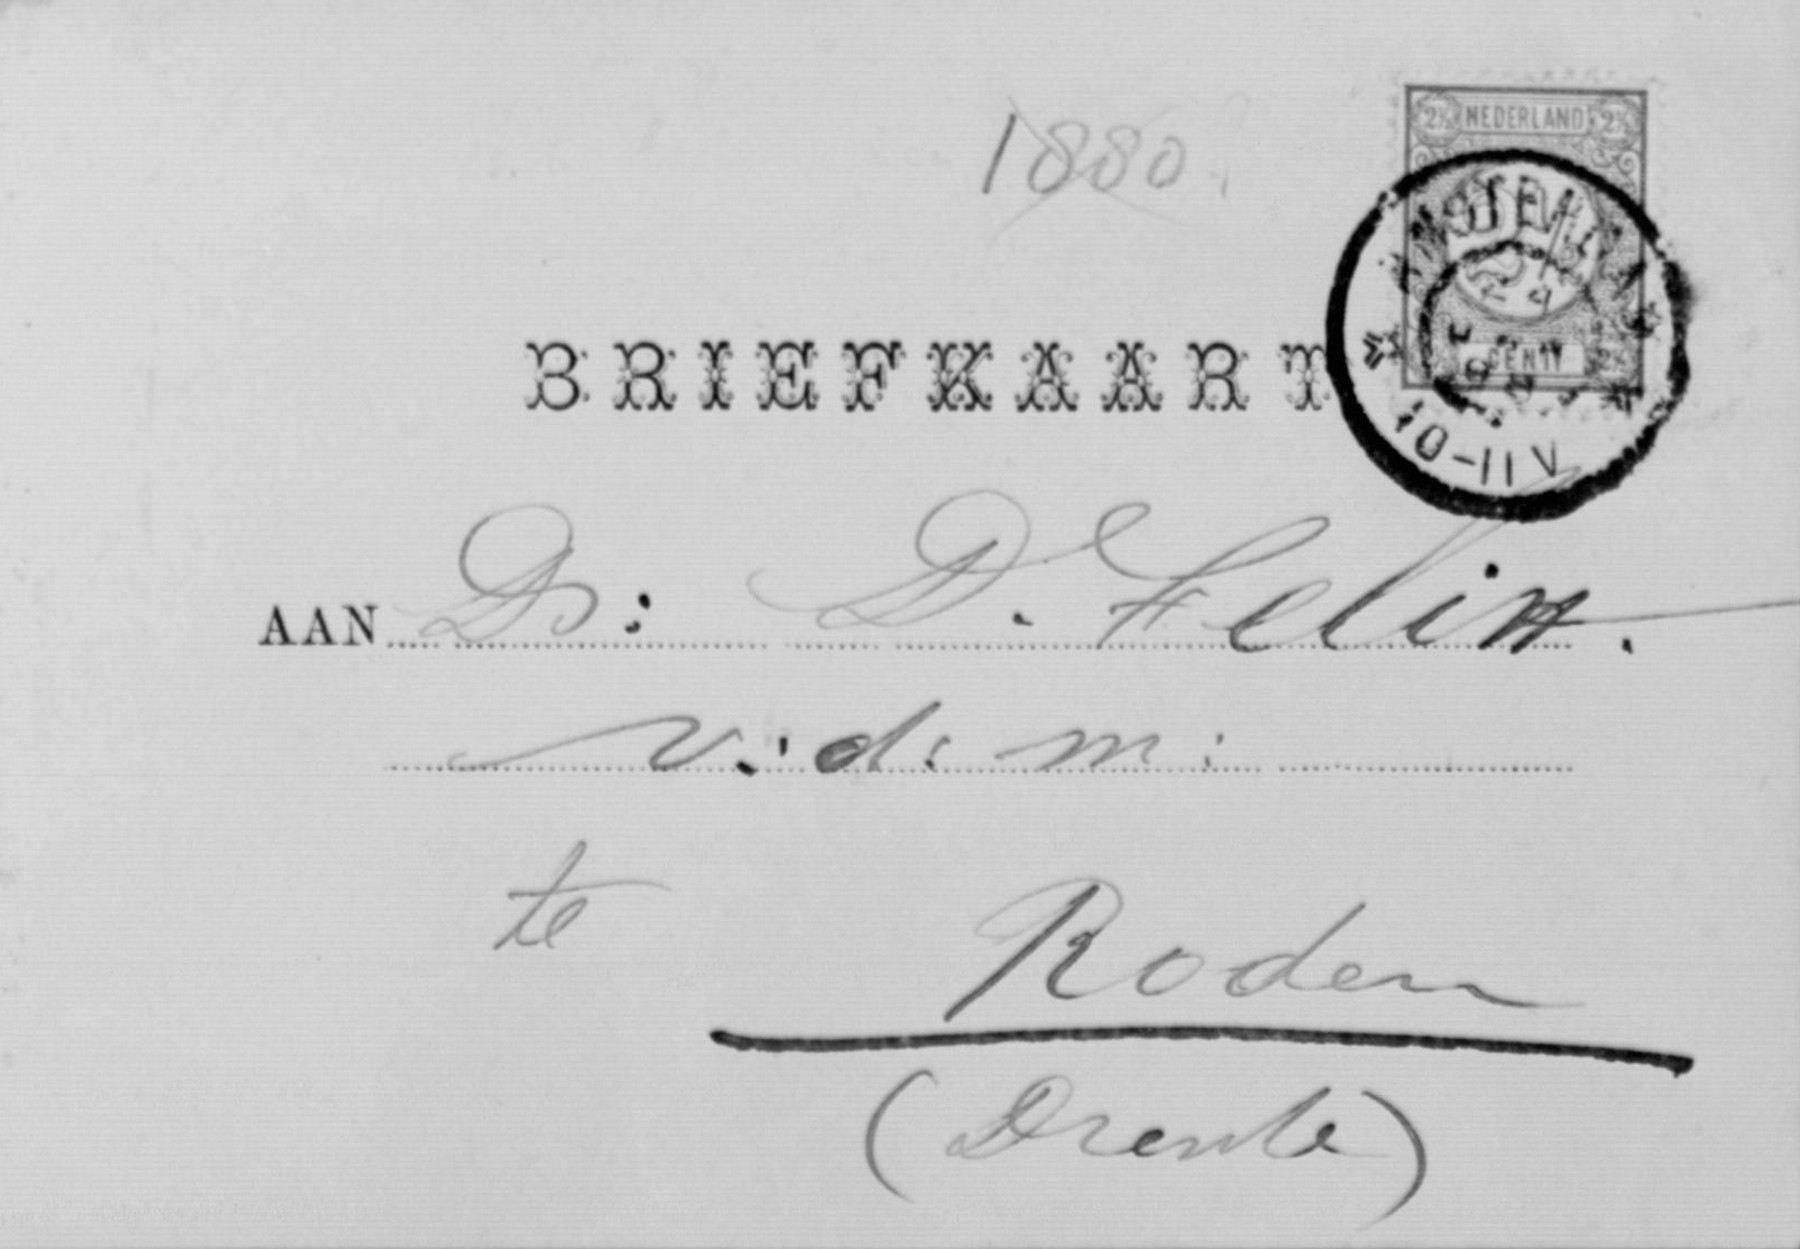 1880.
2½ NEDERLAND 2½
CENT 2½
10-11 V
BRIEFKAART
AAN Ds: D. Felix.
v: d: m:
te Roden
(Drente)